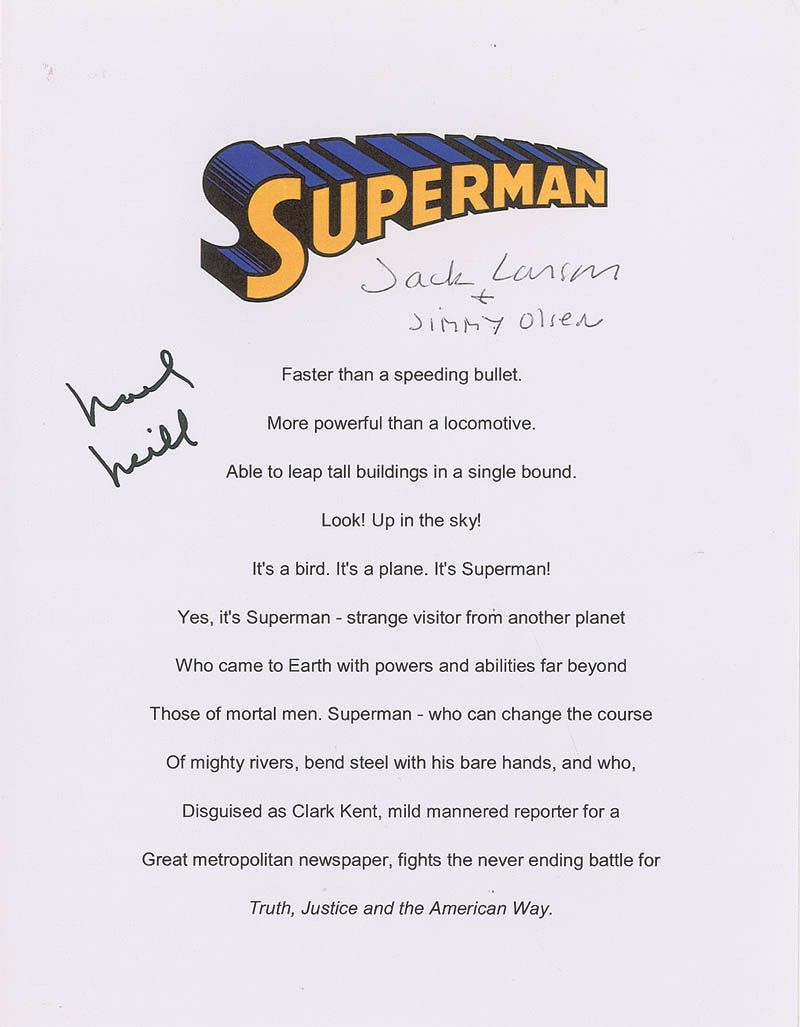 SUPERMAN
Jack Larson
+
Jimmy Olsen
Noel
Neill
Faster than a speeding bullet.
More powerful than a locomotive.
Able to leap tall buildings in a single bound.
Look! Up in the sky!
It's a bird. It's a plane. It's Superman!
Yes, it's Superman - strange visitor from another planet
Who came to Earth with powers and abilities far beyond
Those of mortal men. Superman - who can change the course
Of mighty rivers, bend steel with his bare hands, and who,
Disguised as Clark Kent, mild mannered reporter for a
Great metropolitan newspaper, fights the never ending battle for
Truth, Justice and the American Way.